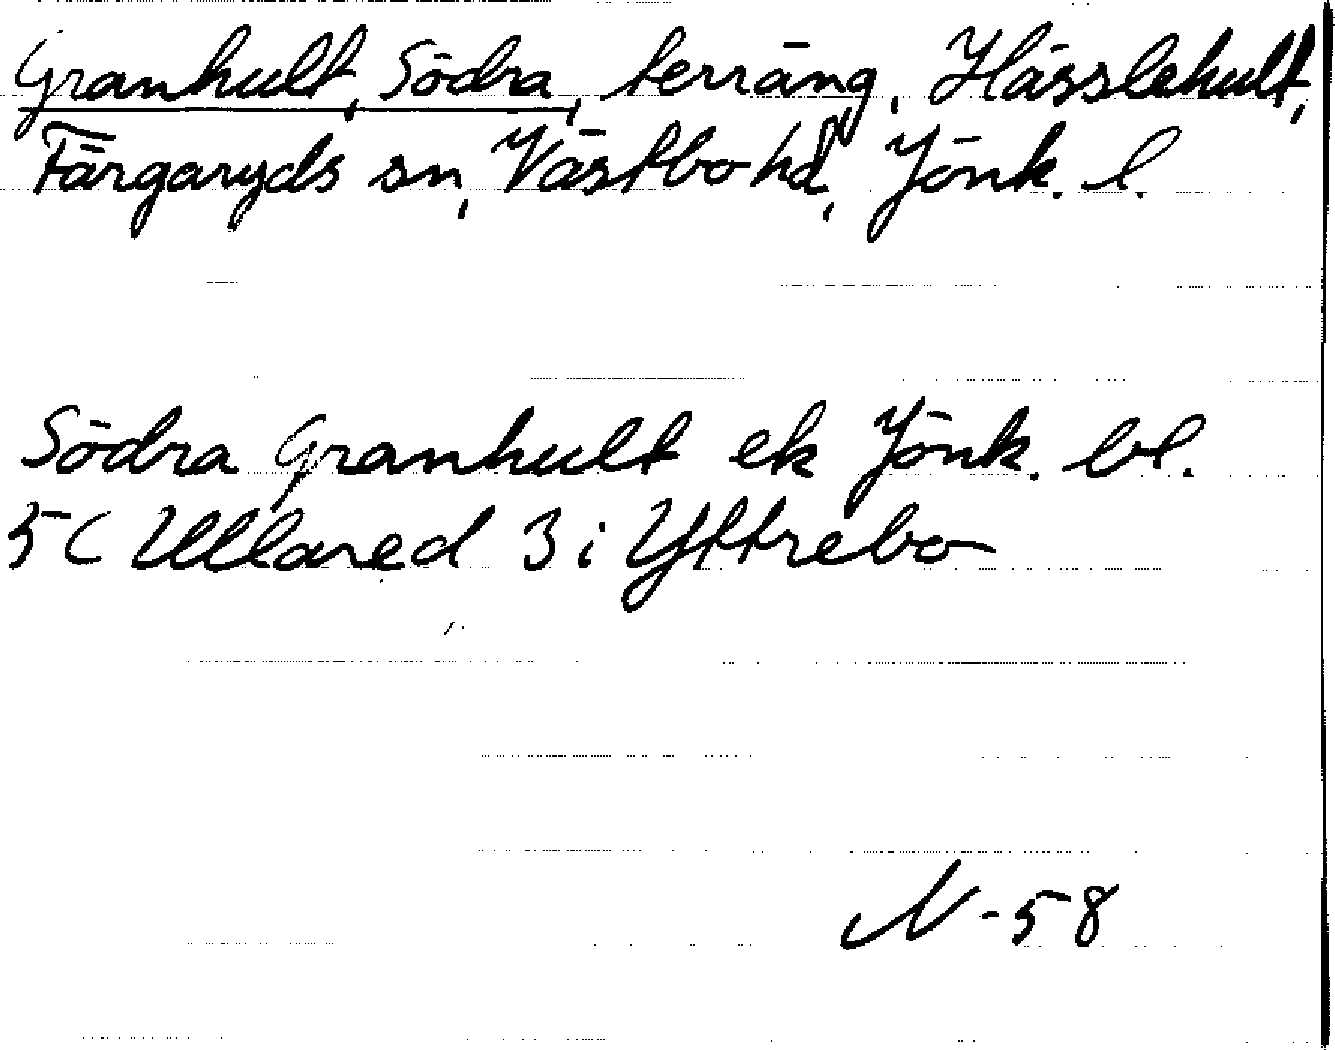 Granhult, Södra, terräng, Hässlehult,
Färgaryds sn, Västbo hd, Jönk. l.
Södra Granhult ek Jönk. bl.
5C Ullared 3 i Yttrebo
N-58